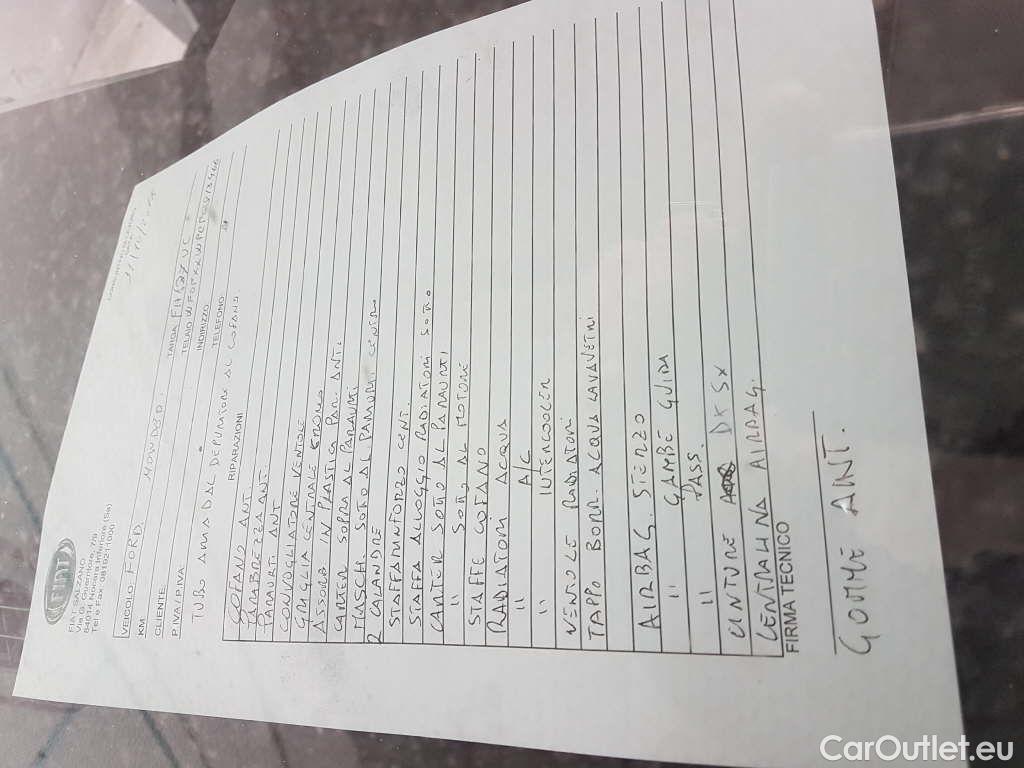 FIAT
EL.VA. ALZANO
VEICOLO FORD MONDEO
KM
CLIENTE
P.IVA/P.IVA
TARGA
TELAIO
INDIRIZZO
TELEFONO
TUBO ARIA DAL DEPURATORE AL COFANO.
RIPARAZIONI
COFANO ANT.
PARABREZZA ANT.
PARAURTI ANT
CONVOGLIATORE VENTOLE
GRIGLIA CENTRALE
IN PLASTICA PAR. ANT.
CARTER SOPRA AL PARAURTI
MASCH. SOTTO AL PARAURTI CENTR
2 CALANDRE
STAFFA RINFORZO CENT.
STAFFA ALLOGGIO RADIATORI SOTTO
CARTER SOTTO AL PARAURTI
" SOTTO AL MOTORE
STAFFE COFANO
RADIATORI ACQUA
" A/C
" INTERCOOLER
VENTOLE RADIATORI
TAPPO BORR. ACQUA LAVAVETRI
AIRBAG. STERZO
" GAMBE GUIDA
" PASS.
CINTURE DX SX
CENTRALINA AIRBAG.
FIRMA TECNICO
GOMME ANT.
CarOutlet.eu